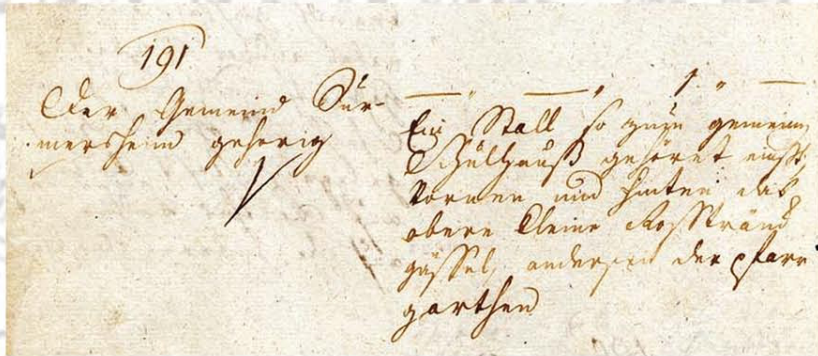 191
Der Gemeind Dur-
mersheim gehörig
1
Ein Stall so zum gemeinen
Schulhauß gehöret
vornen und hinten das
obere kleine
gässel, anderseit der pfarr
garthen